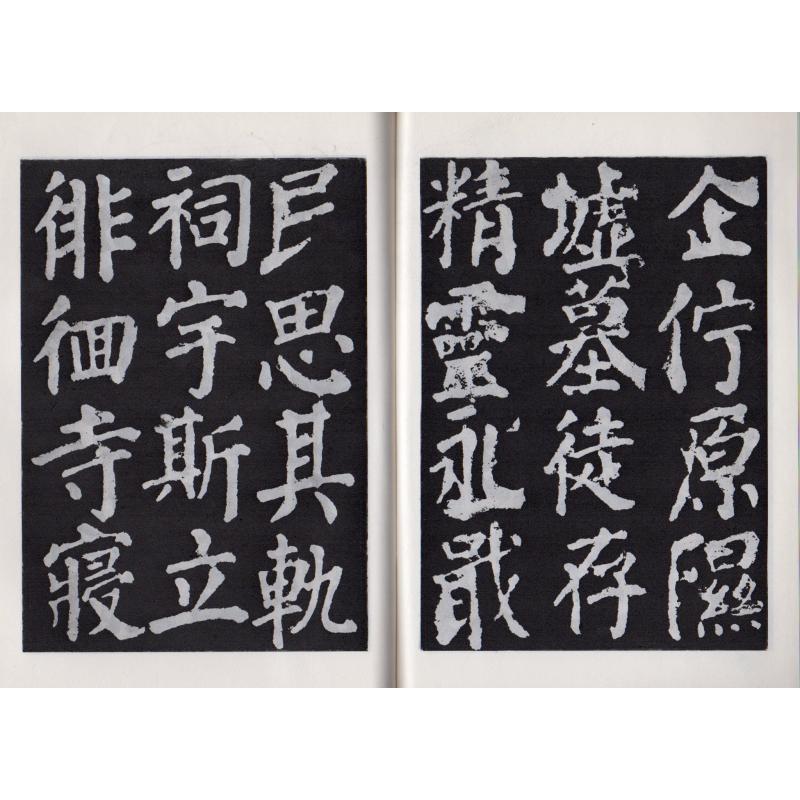 企佇原隰
墟墓徒存
精靈永戢
民思其軌
祠宇斯立
徘徊寺寢